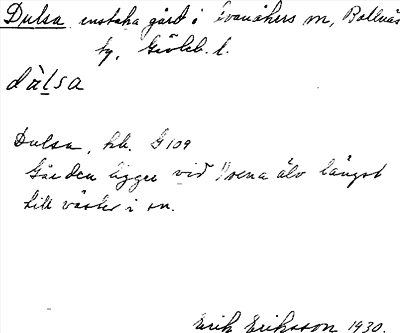 Dulsa enstaka gård i Svanåkers sn, Bollnäs
tg, Gävleb. l.
dàlsa
Dulsa, hh. G 109
Gården ligger vid Voxna älv längst
till väster i sn.
Erik Eriksson 1930.